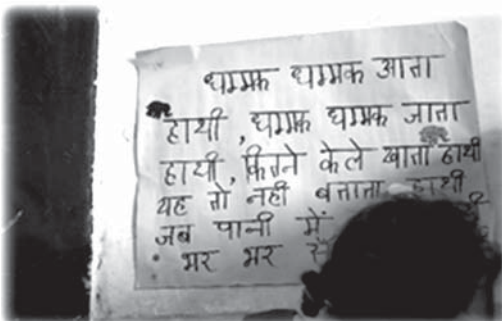 धम्मक धम्मक आता
हाथी, धम्मक धम्मक जाता
हाथी, कितने केले खाता हाथी
यह तो नही बताता हाथी
जब पानी में
भर भर